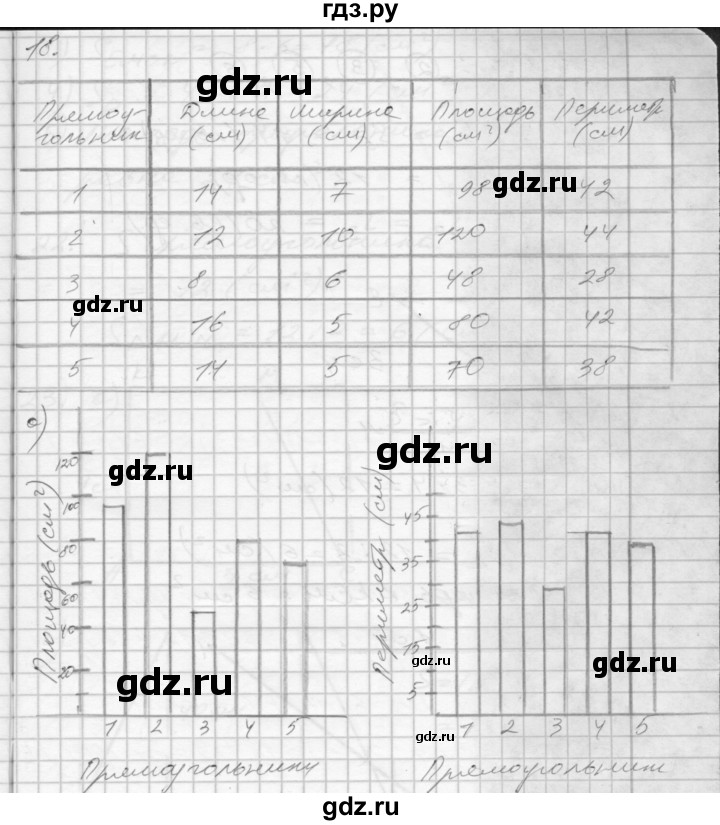 гдз.ру
18.
gdz.ru
Прямоу- Длина Ширина Площадь Периметр
гольник (см) (см) (см²) (см)
1 14 7 98 42
gdz.ru
2 12 10 120 44
3 8 6 48 28
gdz.ru
4 16 5 80 42
5 14 5 70 38
а)
gdz.ru
gdz.ru
Площадь (см²)
120
100
80
60
40
20
1 2 3 4 5
Прямоугольники
Периметр (см)
45
35
25
15
5
1 2 3 4 5
Прямоугольники
gdz.ru
gdz.ru
gdz.ru
gdz.ru
gdz.ru